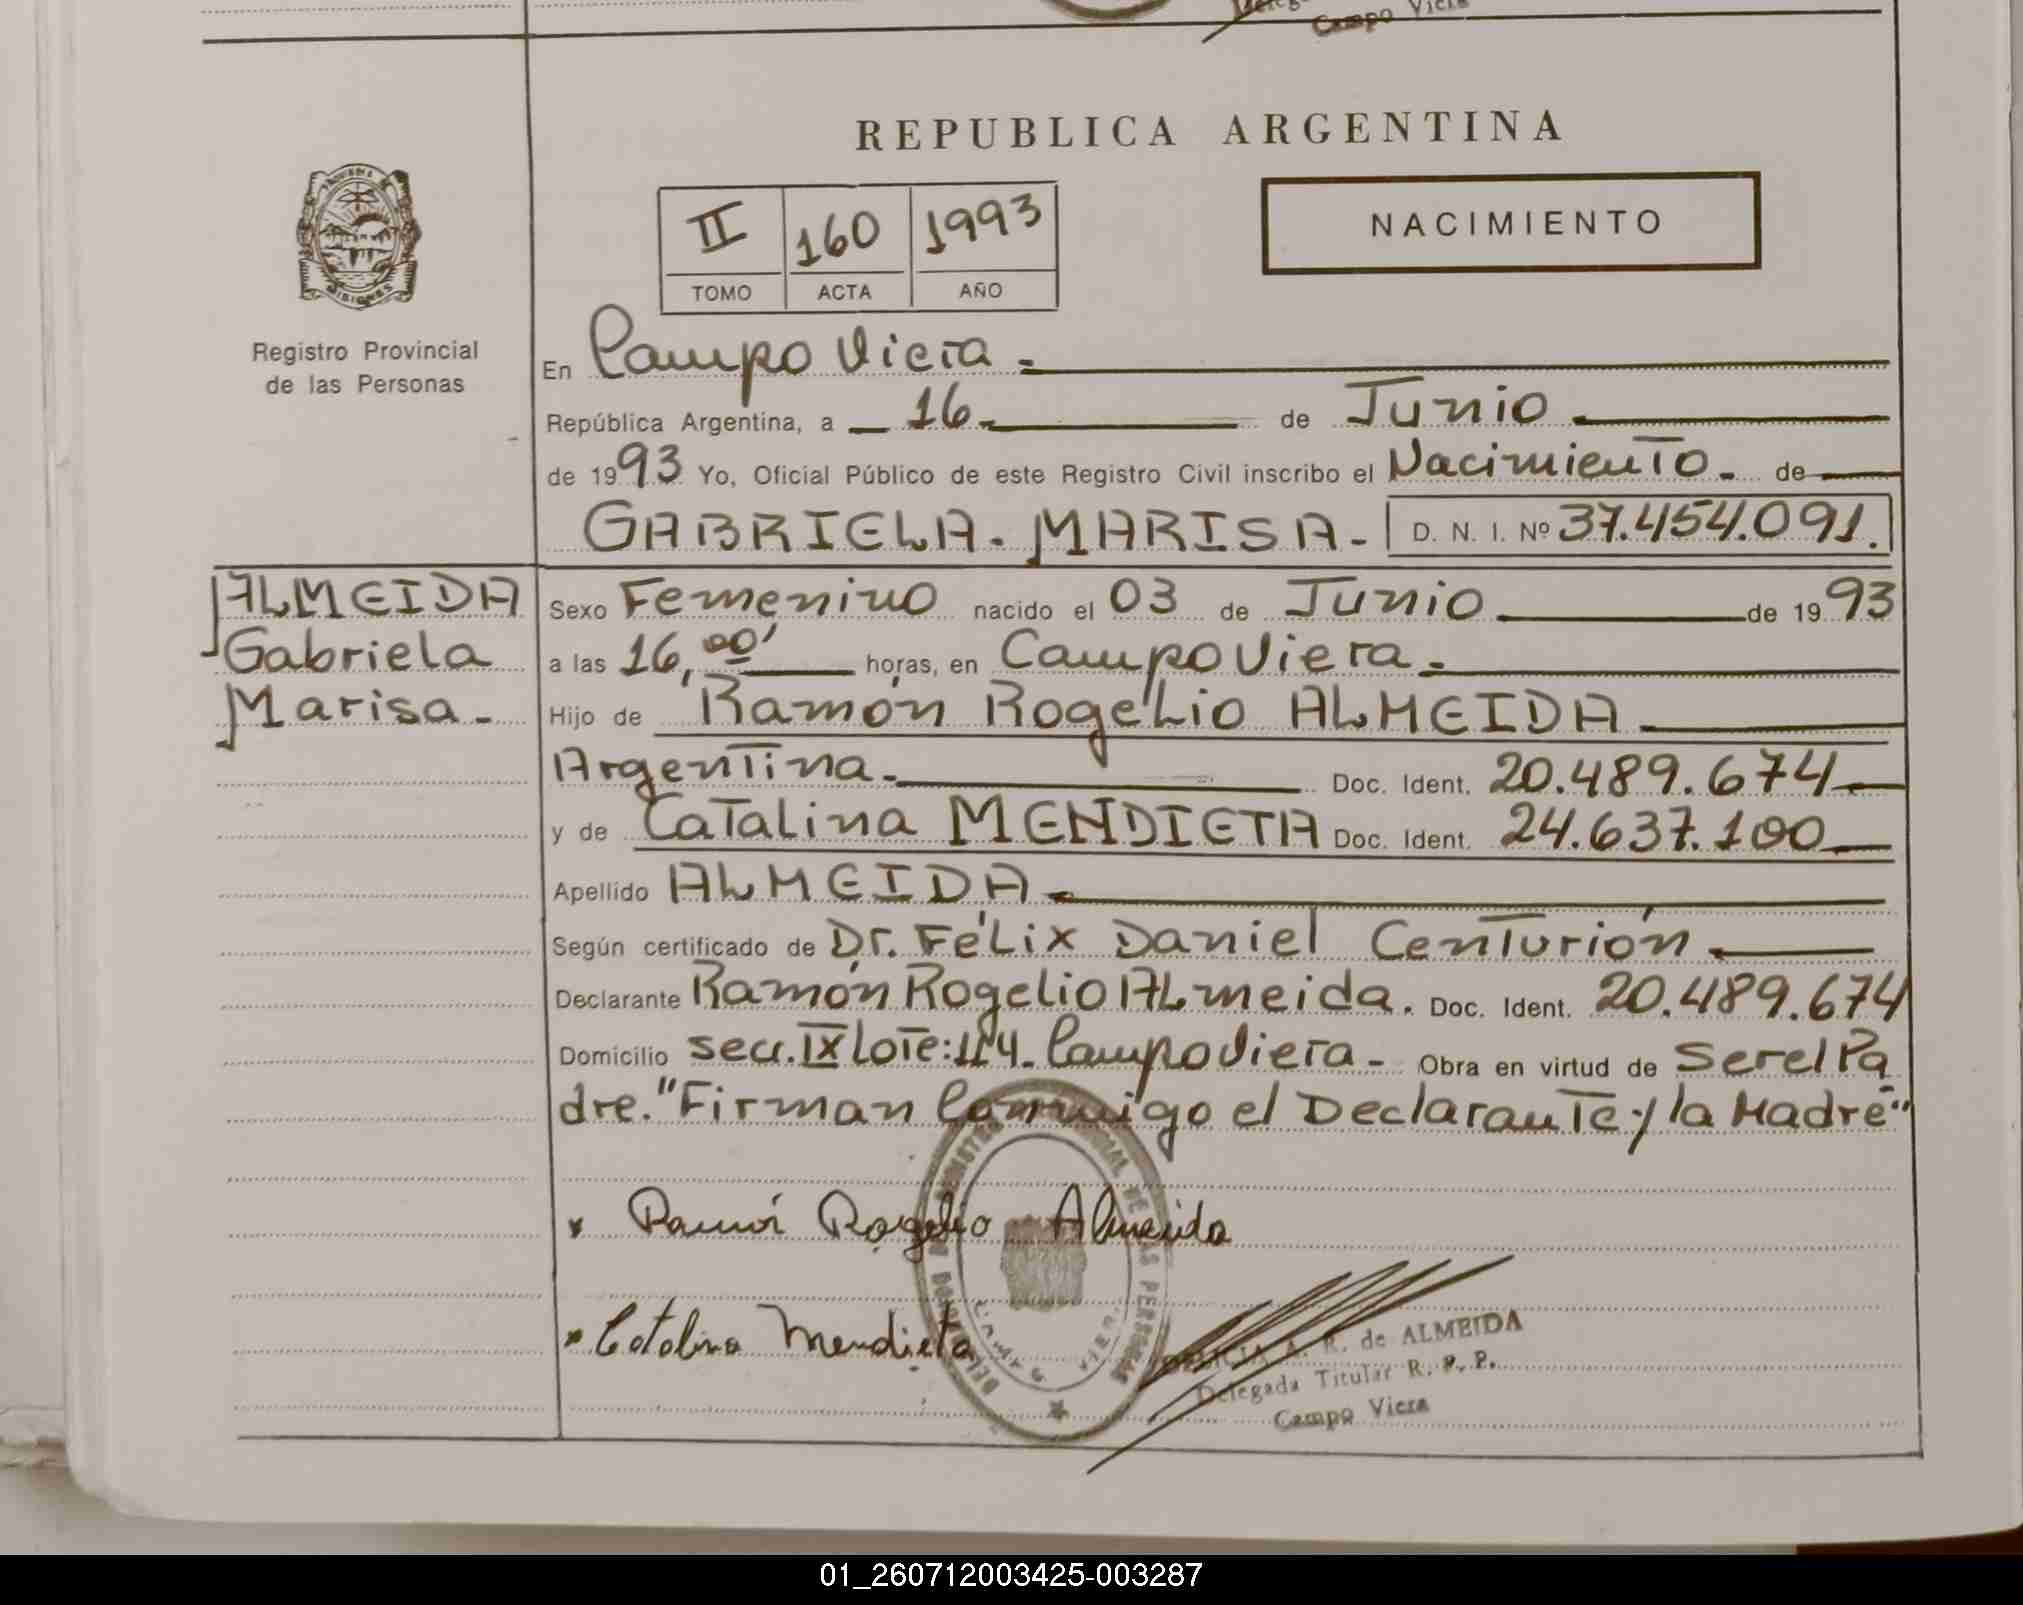 Campo Viera
REPUBLICA ARGENTINA
NACIMIENTO
II 160 1993
TOMO ACTA AÑO
MISIONES
Registro Provincial
de las Personas
En Campo Viera.
República Argentina, a 16 de Junio
de 1993 Yo, Oficial Público de este Registro Civil inscribo el Nacimiento. de
GABRIELA. MARISA. D. N. I. Nº 37.454.091.
ALMEIDA
Gabriela
Marisa.
Sexo Femenino nacido el 03 de Junio de 1993
a las 16,00' horas, en Campo Viera.
Hijo de Ramón Rogelio ALMEIDA
Argentina. Doc. Ident. 20.489.674
y de Catalina MENDIETA Doc. Ident. 24.637.100
Apellido ALMEIDA
Según certificado de Dr. Félix Daniel Centurión
Declarante Ramón Rogelio ALmeida. Doc. Ident. 20.489.674
Domicilio secc. IX Lote: 114. Campo Viera - Obra en virtud de Ser el Pa
dre. "Firman Conmigo el Declarante y la Madre"
Ramón Rogelio Almeida
Catalina Mendieta
A. R. de ALMEIDA
Delegada Titular R. P. P.
Campo Viera
01_260712003425-003287